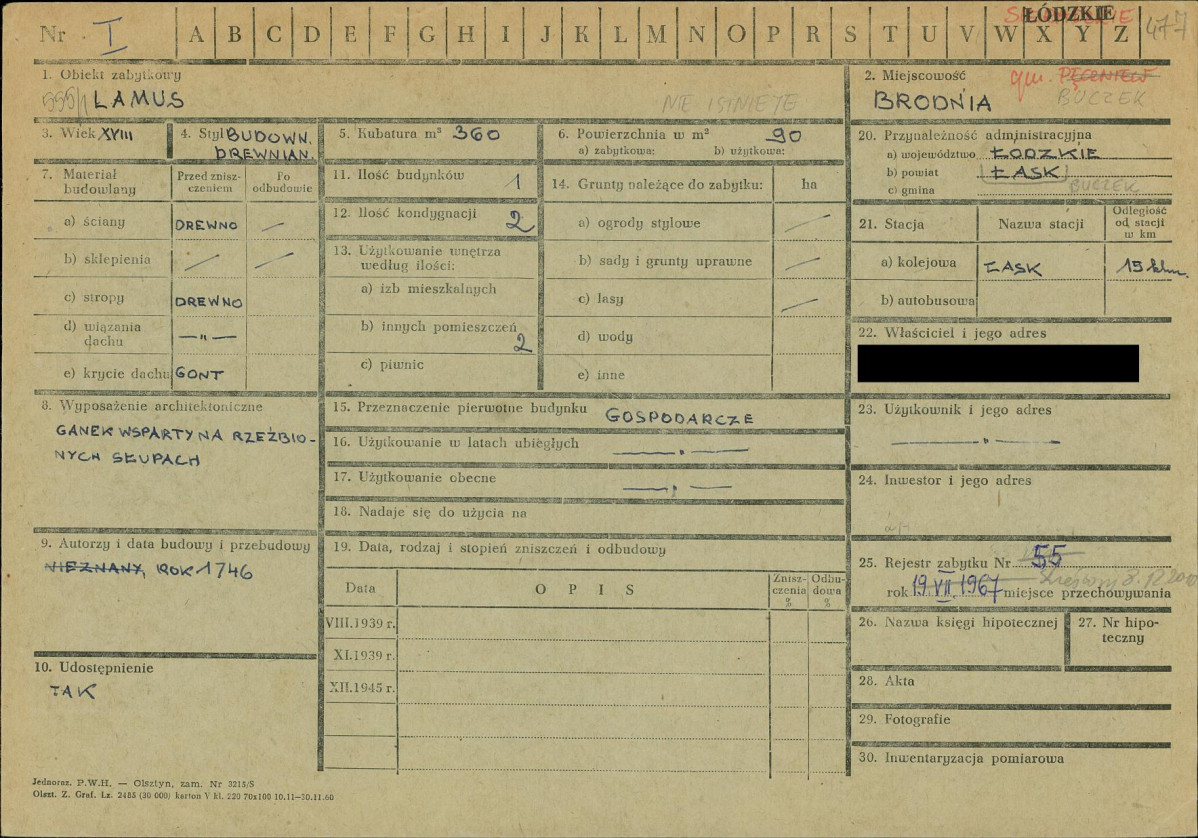 Nr I A B C D E F G H I J K L M N O P R S T U V W X Y Z
ŁÓDZKIE
477
1. Obiekt zabytkowy
555/1 LAMUS
NIE ISTNIEJE
2. Miejscowość gm. PĘCZNIEW
BRODNIA BUCZEK
3. Wiek XVIII
4. Styl BUDOWN.
DREWNIAN.
5. Kubatura m³ 360
6. Powierzchnia w m² 90
a) zabytkowa: b) użytkowa:
7. Materiał budowlany
Przed zniszczeniem
Po odbudowie
a) ściany DREWNO —
b) sklepienia — —
c) stropy DREWNO
d) wiązania dachu — " —
e) krycie dachu GONT
8. Wyposażenie architektoniczne
GANEK WSPARTY NA RZEŹBIO-
NYCH SŁUPACH
9. Autorzy i data budowy i przebudowy
NIEZNANY, ROK 1746
10. Udostępnienie
TAK
11. Ilość budynków 1
12. Ilość kondygnacji 2
13. Użytkowanie wnętrza
według ilości:
a) izb mieszkalnych
b) innych pomieszczeń 2
c) piwnic
14. Grunty należące do zabytku: ha
a) ogrody stylowe —
b) sady i grunty uprawne —
c) lasy —
d) wody
e) inne
15. Przeznaczenie pierwotne budynku GOSPODARCZE
16. Użytkowanie w latach ubiegłych — " —
17. Użytkowanie obecne — " —
18. Nadaje się do użycia na
19. Data, rodzaj i stopień zniszczeń i odbudowy
Data O P I S Zniszczenia % Odbudowa %
VIII.1939 r.
XI.1939 r.
XII.1945 r.
20. Przynależność administracyjna
a) województwo ŁODZKIE
b) powiat ŁASK
c) gmina BUCZEK
21. Stacja Nazwa stacji Odległość od stacji w km
a) kolejowa ŁASK 15 klm.
b) autobusowa
22. Właściciel i jego adres
23. Użytkownik i jego adres
— " —
24. Inwestor i jego adres
25. Rejestr zabytku Nr 55
rok 19.VII.1967 miejsce przechowywania
26. Nazwa księgi hipotecznej
27. Nr hipo-
teczny
28. Akta
29. Fotografie
30. Inwentaryzacja pomiarowa
Jednoraz. P.W.H. — Olsztyn, zam. Nr 3215/S
Olszt. Z. Graf. Lz. 2485 (30 000) karton V kl. 220 70x100 10.11—30.11.60